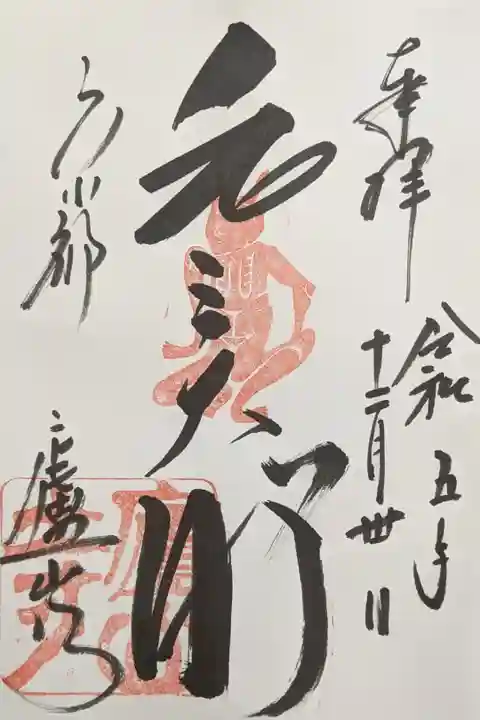 奉拝
令和五年
十二月卅日
元三大師
京都
廬山寺